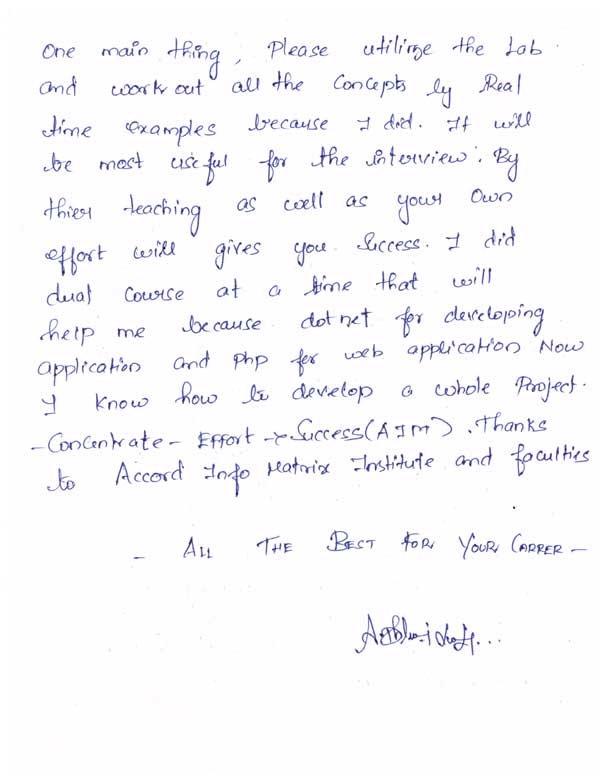 One main thing, Please utilize the Lab
and work out all the Concepts by Real
time examples because I did. It will
be most useful for the interview. By
thier teaching as well as your own
effort will gives you Success. I did
dual course at a time that will
help me because dotnet for developing
application and php for web application Now
I know how to develop a whole Project.
- Concentrate - Effort -> Success (AIM). Thanks
to Accord Info Matrix Institute and faculties
- ALL THE BEST FOR YOUR CARRER -